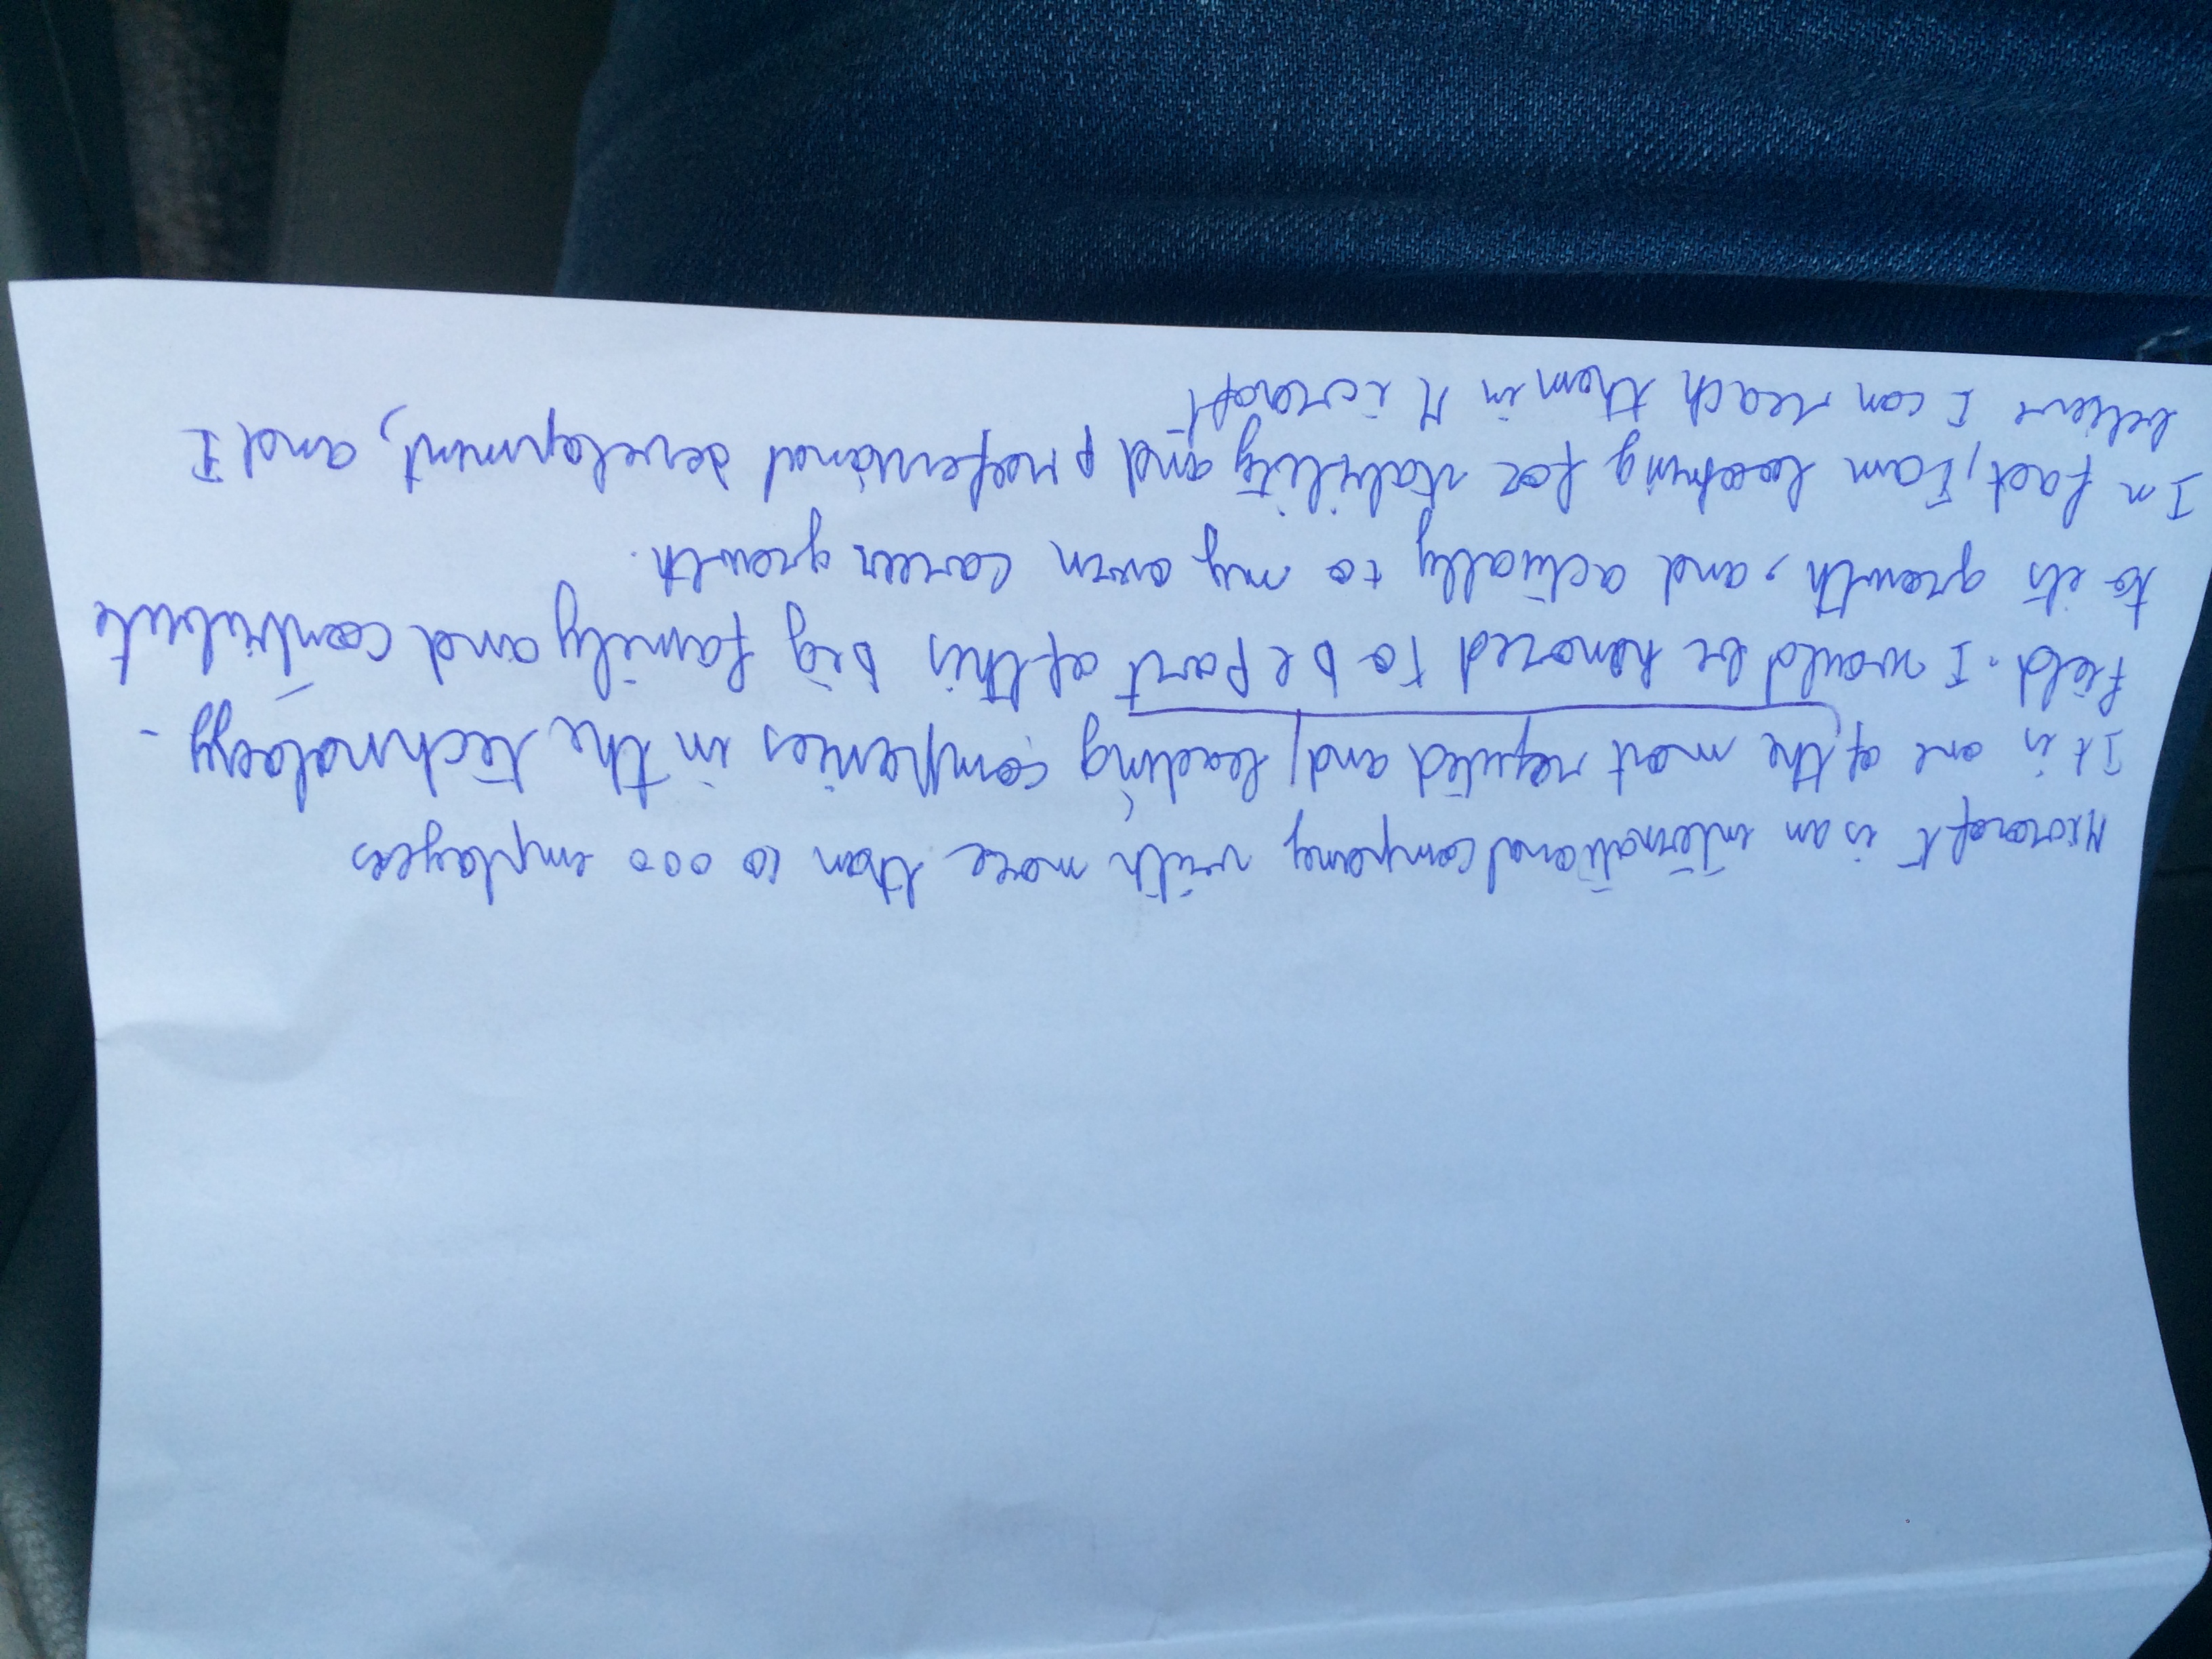 Microsoft is an international company with more than 10 000 employees
It is one of the most reputed and leading companies in the technology -
field. I would be honored to be Part of this big family and contribute
to its growth, and actually to my own career growth.
In fact, I am looking for stability and professional development, and I
believe I can reach them in Microsoft